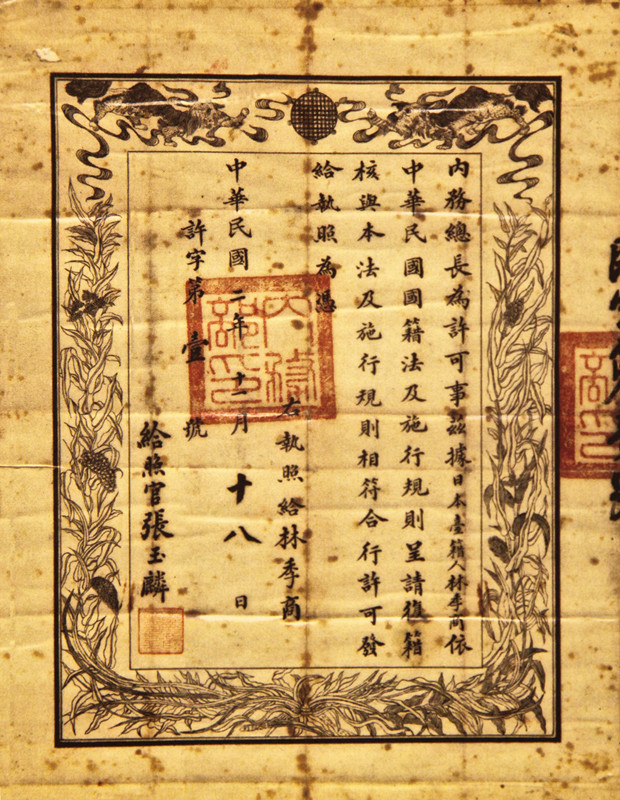 內務總長為許可事茲據日本臺籍人林季商依
中華民國國籍法及施行規則呈請復籍
核與本法及施行規則相符合行許可發
給執照為憑
右執照給林季商
中華民國二年十一月十八日
許字第壹號
給照官張玉麟
內務部印